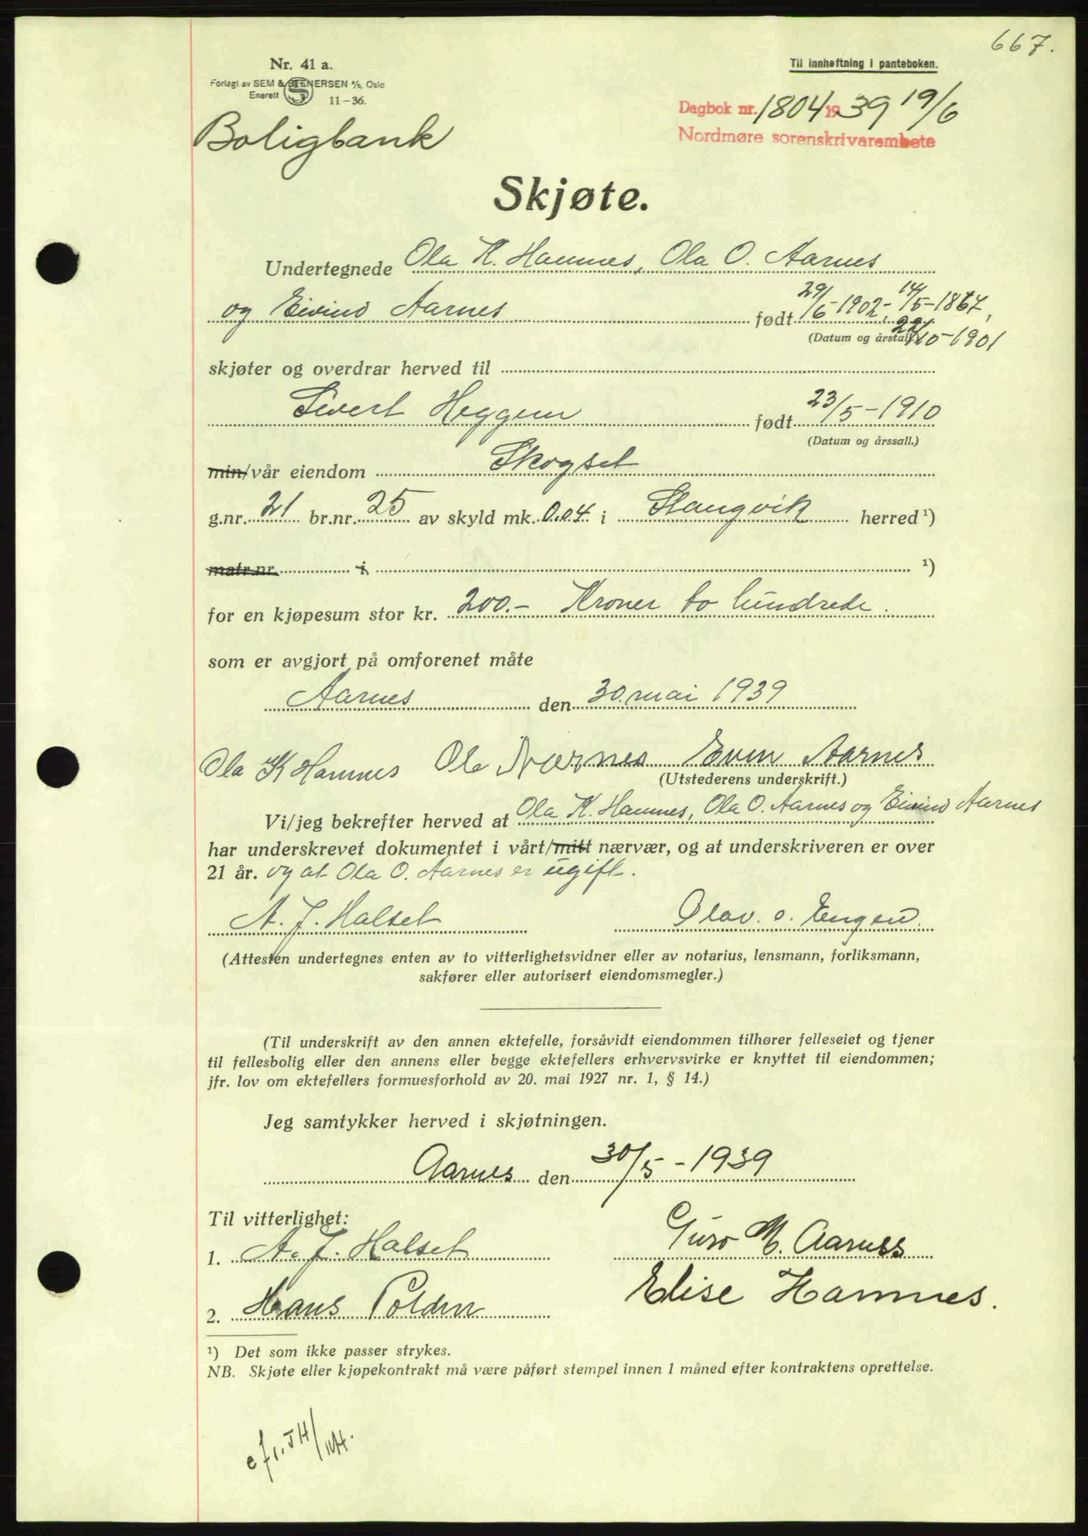 667.
Nr. 41 a.
Forlagt av SEM & STENERSEN A/S, Oslo
Enerett 11-36.
Til innheftning i panteboken.
Dagbok nr. 1804 1939 19/6
Nordmøre sorenskrivarembete
Boligbank
Skjøte.
Undertegnede Ola K. Hamnes, Ola O. Aarnes
og Eivind Aarnes født 29/6-1902, 14/5-1867,
(Datum og årstall.) 22/10-1901
skjøter og overdrar herved til
Sivert Heggem født 23/5-1910
(Datum og årssall.)
min/vår eiendom Skogset
g.nr. 21 br.nr. 25 av skyld mk. 0.04 i Stangvik herred ¹)
matr.nr. i ¹)
for en kjøpesum stor kr. 200.- Kroner to hundrede.
som er avgjort på omforenet måte
Aarnes den 30. mai 1939
Ola K Hamnes Ola Aarnes Evin Aarnes
(Utstederens underskrift.)
Vi/jeg bekrefter herved at Ola K. Hamnes, Ola O. Aarnes og Eivind Aarnes
har underskrevet dokumentet i vårt/mitt nærvær, og at underskriveren er over
21 år. og at Ola O. Aarnes er ugift.
A. J. Halset Olav. O. Engen.
(Attesten undertegnes enten av to vitterlighetsvidner eller av notarius, lensmann, forliksmann,
sakfører eller autorisert eiendomsmegler.)
(Til underskrift av den annen ektefelle, forsåvidt eiendommen tilhører felleseiet og tjener
til fellesbolig eller den annens eller begge ektefellers erhvervsvirke er knyttet til eiendommen;
jfr. lov om ektefellers formuesforhold av 20. mai 1927 nr. 1, § 14.)
Jeg samtykker herved i skjøtningen.
Aarnes den 30/5-1939
Til vitterlighet:
1. A. J. Halset Guro M. Aarnes
2. Hans Polden Elise Hamnes.
¹) Det som ikke passer strykes.
NB. Skjøte eller kjøpekontrakt må være påført stempel innen 1 måned efter kontraktens oprettelse.